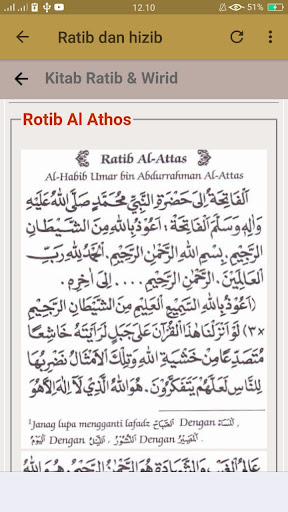 12.10
51%
Ratib dan hizib
Kitab Ratib & Wirid
Rotib Al Athos
Ratib Al-Attas
Al-Habib Umar bin Abdurrahman Al-Attas
اَلْفَاتِحَةُ إِلَى حَضْرَةِ النَّبِيِّ مُحَمَّدٍ صَلَّى اللهُ عَلَيْهِ
وَاٰلِهِ وَسَلَّمَ اَلْفَاتِحَةُ : اَعُوْذُ بِاللهِ مِنَ الشَّيْطَانِ
الرَّجِيْمِ. بِسْمِ اللهِ الرَّحْمٰنِ الرَّحِيْمِ. اَلْحَمْدُ لِلّٰهِ رَبِّ
الْعَالَمِيْنَ. الرَّحْمٰنِ الرَّحِيْمِ .... إِلَى اٰخِرِهِ.
(اَعُوْذُ بِاللهِ السَّمِيْعِ الْعَلِيْمِ مِنَ الشَّيْطَانِ الرَّجِيْمِ
×٣) لَوْ اَنْزَلْنَا هٰذَا الْقُرْاٰنَ عَلَى جَبَلٍ لَرَاَيْتَهُ خَاشِعًا
مُتَصَدِّعًا مِنْ خَشْيَةِ اللهِ وَتِلْكَ الْاَمْثَالُ نَضْرِبُهَا
لِلنَّاسِ لَعَلَّهُمْ يَتَفَكَّرُوْنَ. هُوَ اللهُ الَّذِيْ لَا اِلٰهَ اِلَّا هُوَ
¹Janag lupa mengganti lafadz الصَّبَاحُ Dengan الْمَسَاءُ ,
الْيَوْمُ Dengan اللَّيْلُ Dengan النُّشُوْرُ , الْمَصِيْرُ Dengan
عَالِمُ الْغَيْبِ وَالشَّهَادَةِ هُوَ الرَّحْمٰنُ الرَّحِيْمُ. هُوَ اللهُ